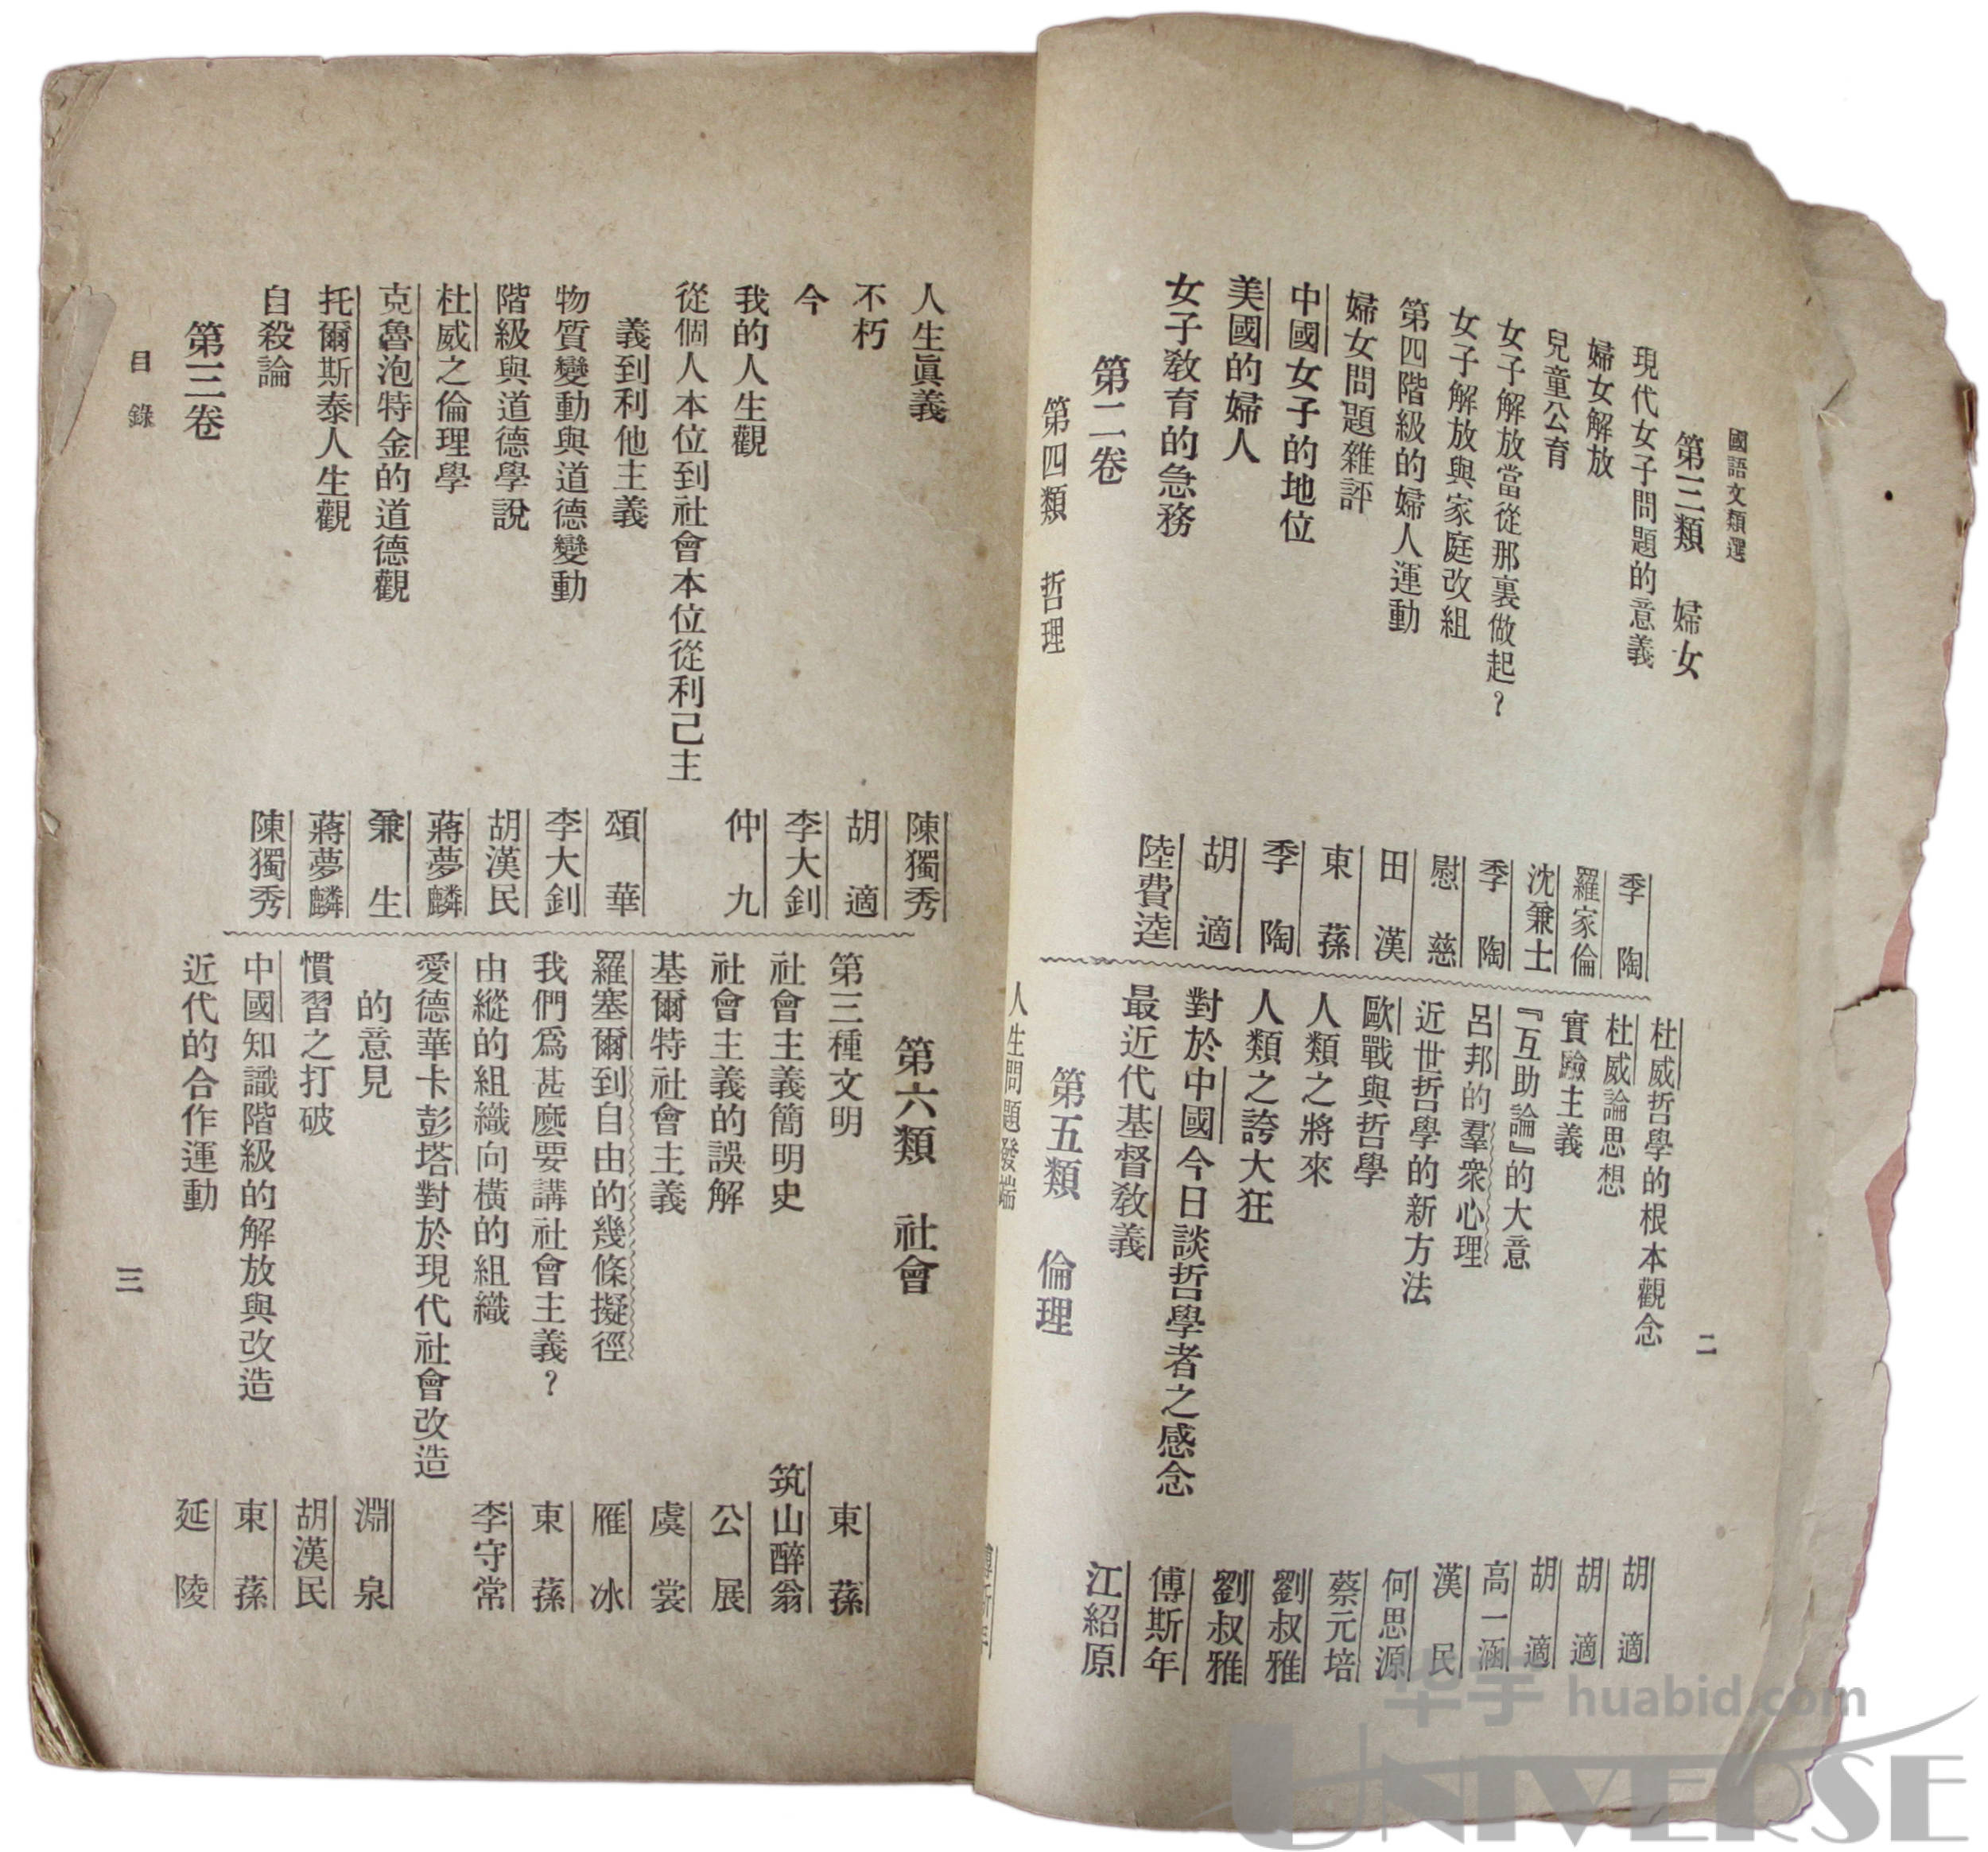 國語文類選
二
第三類 婦女
現代女子問題的意義 季陶
婦女解放 羅家倫
兒童公育 沈兼士
女子解放當從那裏做起？ 季陶
女子解放與家庭改組 慰慈
第四階級的婦人運動 田漢
婦女問題雜評 東蓀
中國女子的地位 季陶
美國的婦人 胡適
女子教育的急務 陸費逵
第二卷
第四類 哲理
杜威哲學的根本觀念 胡適
杜威論思想 胡適
實驗主義 胡適
『互助論』的大意 高一涵
呂邦的羣衆心理 漢民
近世哲學的新方法 何思源
歐戰與哲學 蔡元培
人類之將來 劉叔雅
人類之誇大狂 劉叔雅
對於中國今日談哲學者之感念 傅斯年
最近代基督教義 江紹原
第五類 倫理
人生問題發端 傅斯年
人生眞義 陳獨秀
不朽 胡適
今 李大釗
我的人生觀 仲九
從個人本位到社會本位從利己主
義到利他主義 頌華
物質變動與道德變動 李大釗
階級與道德學說 胡漢民
杜威之倫理學 蔣夢麟
克魯泡特金的道德觀 兼生
托爾斯泰人生觀 蔣夢麟
自殺論 陳獨秀
第三卷
第六類 社會
第三種文明 東蓀
社會主義簡明史 筑山醉翁
社會主義的誤解 公展
基爾特社會主義 虞裳
羅塞爾到自由的幾條擬徑 雁冰
我們爲甚麽要講社會主義？ 東蓀
由縱的組織向橫的組織 李守常
愛德華卡彭塔對於現代社會改造
的意見 淵泉
慣習之打破 胡漢民
中國知識階級的解放與改造 東蓀
近代的合作運動 延陵
目錄
三
华宇 huabid.com
UNIVERSE